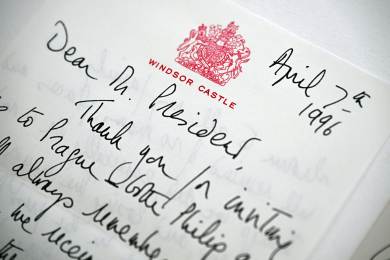 WINDSOR CASTLE
April 7th
1996
Dear Mr. President,
Thank you for inviting
to Prague Philip
always remember
we
the